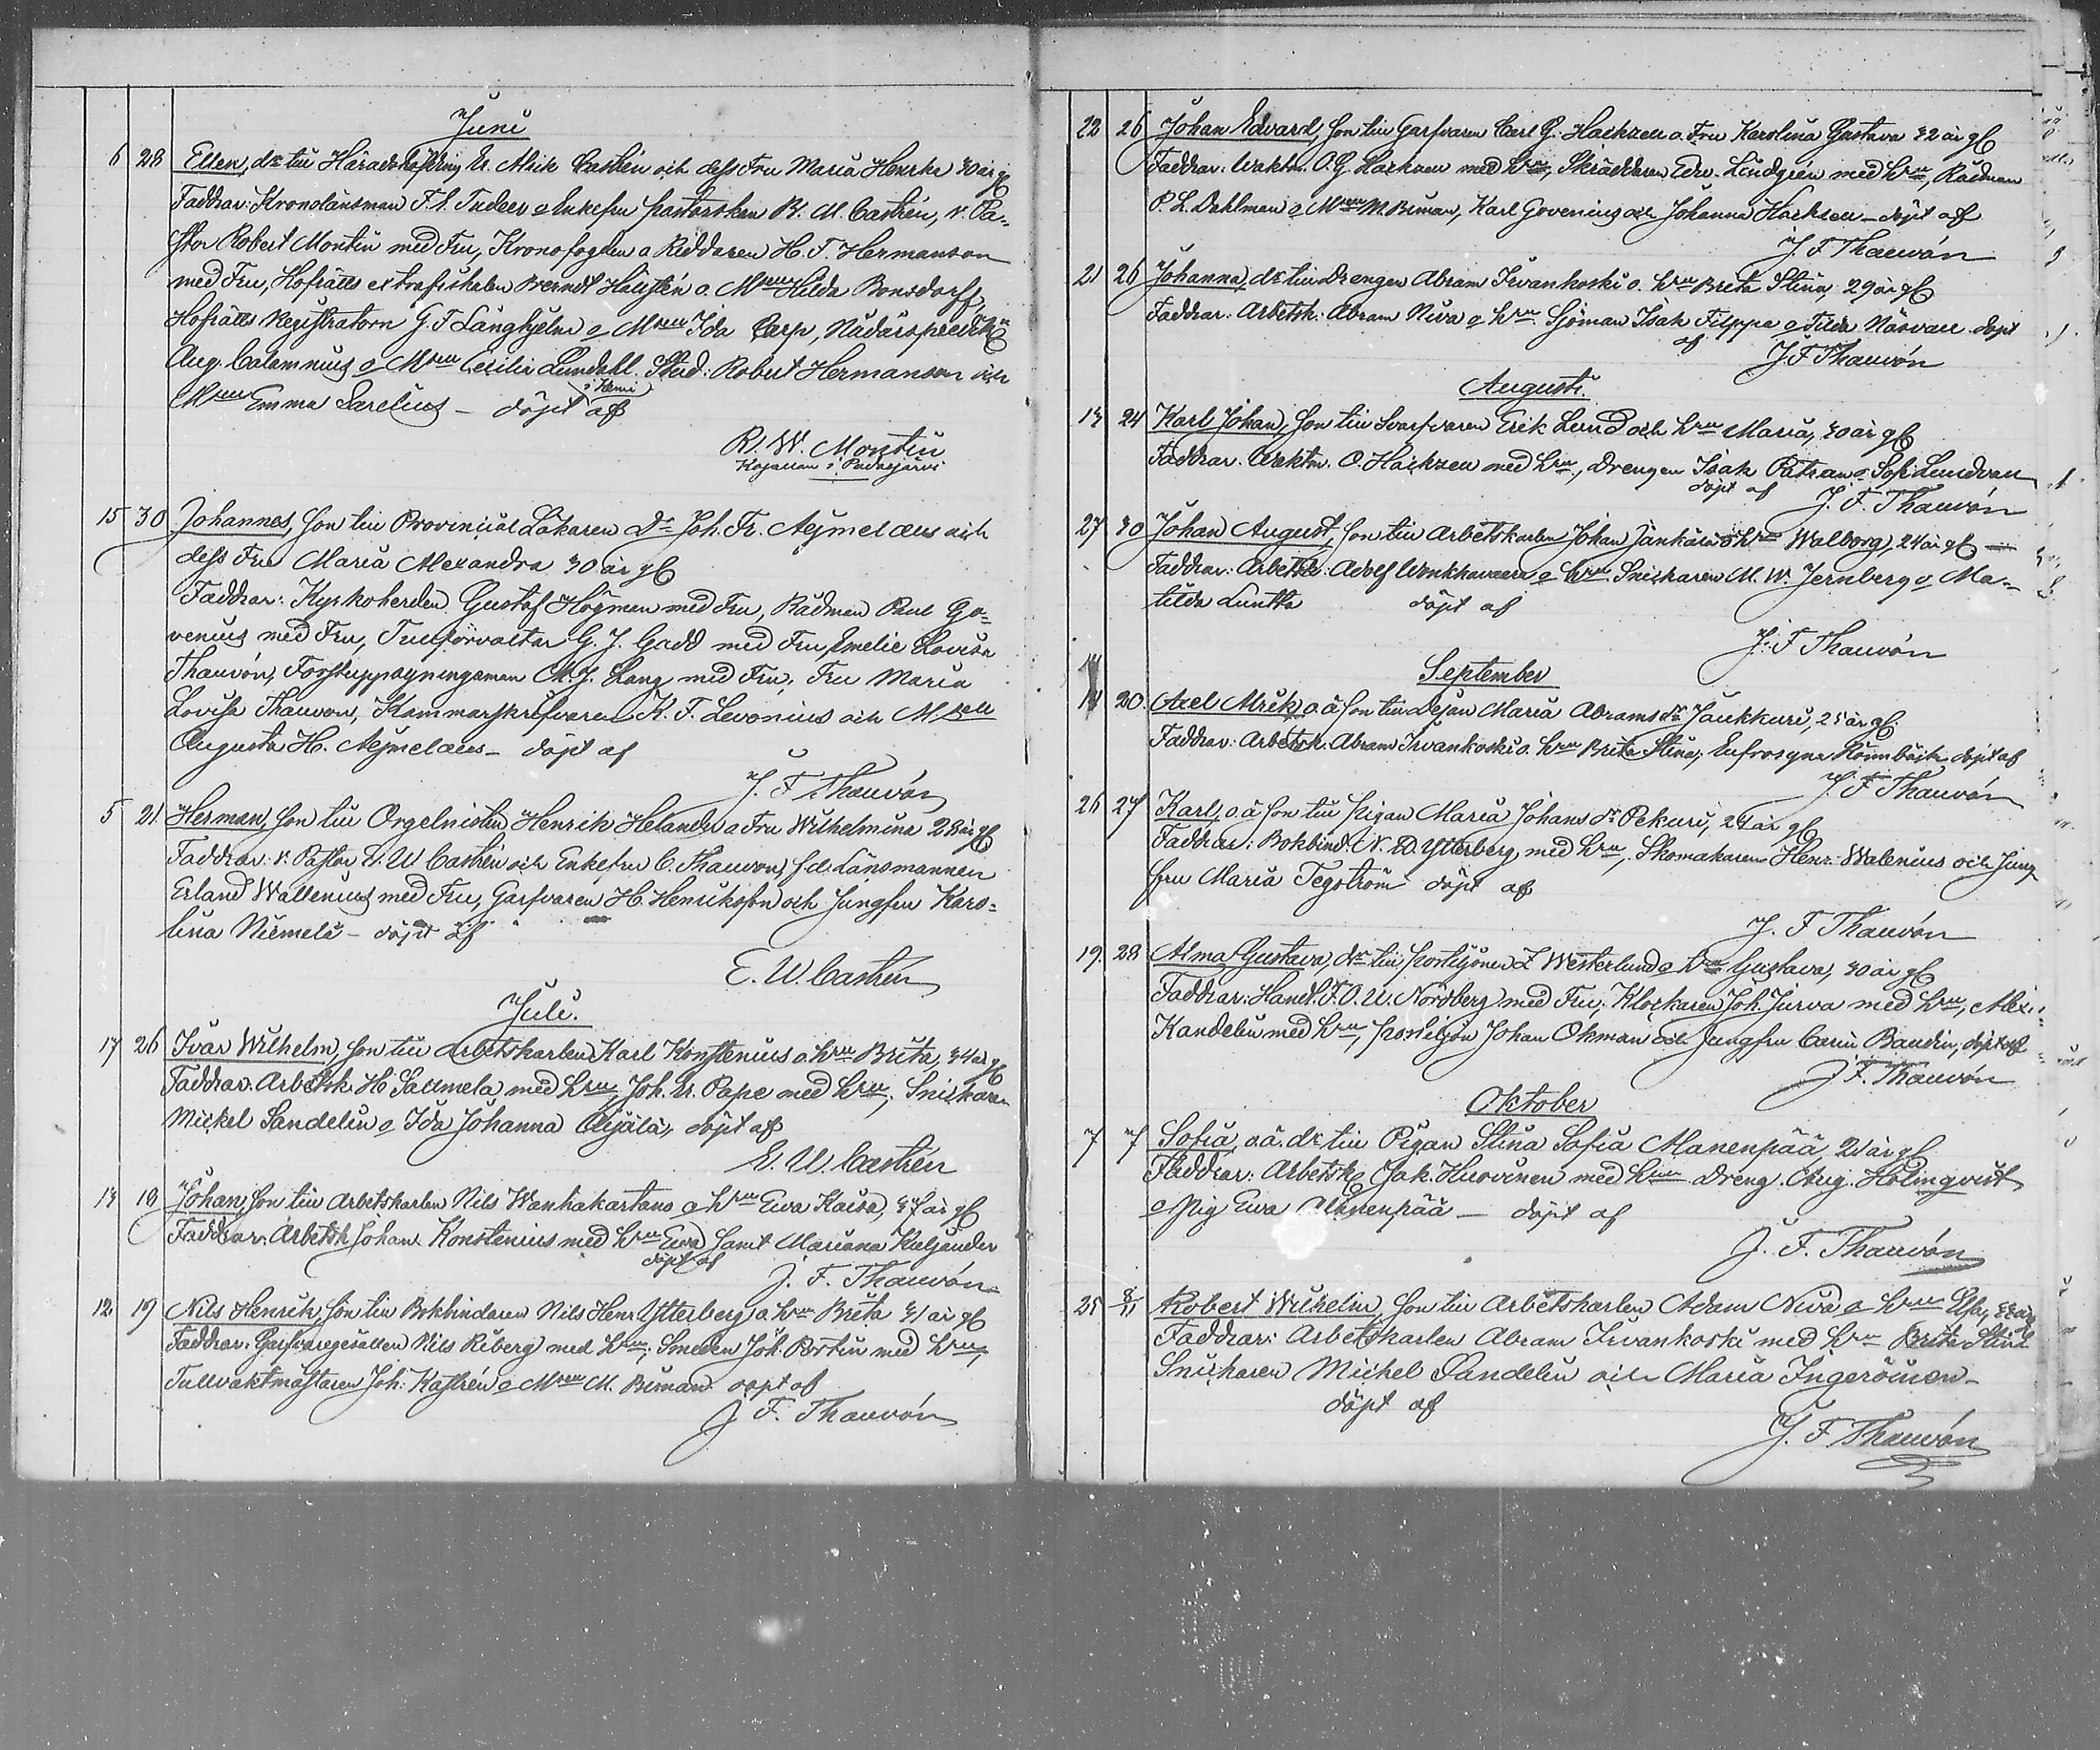 Juni
6 28 Ellen, dr till Häradshöfding Z. Alrik Castrén och dess Fru Maria Henrika 30 år gl
Faddrar: Kronolänsman F. A. Tudeer o Enkefru pastorskan B. M. Castrén, v. Pa-
stor Robert Montin med Fru, Kronofogden o Riddaren H. F. Hermanson
med Fru, Hofrätts extrafiskalen Berndt Hallstén o. Msell Hilda Bonsdorff,
Hofrätts Registratorn G. F Långhjelm o Msell Ida Carp, Nådårspredik:
Aug. Calamnius o Msell Cecilia Lundahl. Stud: Robert Hermanson och
i Kemi
Msell Emma Sarelius – döpt af
R. W. Montin
Kapellan i Pudasjärvi
15 30 Johannes, son till Provincial Läkaren Dr Joh. Fr. Aejmelæus och
dess Fru Maria Alexandra 30 år gl
Faddrar: Kyrkoherden Gustaf Högman med Fru, Rådman Paul Go-
venius med Fru, Tullförvaltar G. J. Gadd med Fru, Emelie Lovisa
Thauvón, Forstuppsyningsman M. J. Lang med Fru, Fru Maria
Lovisa Thauvon, Kammarskrifvaren K. F. Levonius och Msell
Augusta H. Aejmelæus – döpt af
J. F Thauvón
5 21. Herman, son till Orgelnisten Henrik Helander o Fru Wilhelmina 28 år gl
Faddrar: v. Pastor E. W Castrén och Enkefru C. Thauvon, f.d. Länsmannen
Erland Wallenius med Fru, Garfvaren H. Henriksson och Jungfru Karo-
lina Niemelä – döpt af
E. W. Castrén
Juli.
17 26 Ivar Wilhelm, son till Arbetskarlen Karl Konstenius o hru Brita, 34 år gl
Faddrar: Arbetsk. H. Saumela med hru, Joh. E. Pape med hru, Snickaren
Mickel Sandelin o Ida Johanna Alijälä, döpt af
E. W. Castrén
13 19 Johan, son till Arbetskarlen Nils Wanhakartano o hru Ewa Kaisa, 37 år gl
Faddrar: Arbetsk Johan Konstenius med hru Ewa samt Mariana Kiljander
döpt af
J. F. Thauvón
12 19 Nils Henrik, son till Bokbindaren Nils Henr. Ytterberg o hru Brita 31 år gl
Faddrar: Garfvaregesällen Nils Riberg med hru; Smeden Joh. Portin med hru,
Tullvaktmästaren Joh. Kastrén o Msell M. Biman döpt af
J. F. Thauvón
22 26 Johan Edvard, son till Garfvaren Carl G. Hackzell o. Fru Karolina Gustava 32 år gl
Faddrar. Waktm. O. G. Hackzell med hru, Skräddaren Edv. Lindgrén med hru, Rådman
P. L. Dahlman o Msell M. Biman, Karl Govenius och Johanna Hackzell – döpt af
J. F Thauvón
21 26 Johanna, dr till Drengen Abram Irvankoski o. hru Brita Stina 29 år gl
Faddrar. Arbetsk: Abram Niva o hru. Sjöman Isak Filppa o Tilda Näsvall döpt
af J F Thauvón
Augusti.
13 24 Karl Johan, son till Svarfvaren Erik Lund och hru Maria, 30 år gl
Faddrar. Waktm. O. Hackzell med hru, drengen Isak Ratran o Sofi Lundvall
döpt af J. F. Thauvón
27 30 Johan August, son till Arbetskarlen Johan Jänkälä o hru Walborg, 24 år gl
Faddrar: Arbetsk. Adolf Wonkkavaara o hru Snickaren M. W. Jernberg o Ma-
tilda Luntta döpt af
J. F Thauvón
September
14 20. Axel Alrik o ä son till Pejan Maria Abrams dr Jaukkuri, 25 år gl.
Faddrar: Arbetsk. Abram Irvankoski o. hru Brita Stina, Eufrosyne Rönnbäck döpt af
J. F Thauvón
26 27 Karl, o. ä son till pigan Maria Johans dr Pekuri, 24 år gl
Faddrar: Bokbind. N. H. Ytterberg med hru, Skomakaren Henr. Walenius och Jung-
fru Maria Tegström döpt af
J. F Thauvón
19 28 Alma Gustava, dr till postiljonen Z Westerlund o hru Gustava, 30 år gl
Faddrar: Handl. F. O. U. Nordberg med Fru; Klockaren Joh. Jurva med hru, Alex.
Kandelin med hru, postiljon Johan Okman och Jungfru Carin Baudin, döpt af
J F. Thauvón
Oktober
7 7 Sofia o. ä. dr till Pigan Stina Sofia Alanenpää 21 år gl
Faddrar: Arbetsk Jak. Huovinen med hru dreng. Aug. Holmqvist
o Pig Ewa Alanenpää – döpt af
J. F. Thauvón
25 8/11 Robert Wilhelm, son till Arbetskarlen Adam Niva o hru Elsa, 33 år
Faddrar: Arbetskarlen Abram Irvankoski med hru Brita Stina
Snickaren Mickel Sandelin och Maria Ingeröinen –
döpt af
J. F Thauvón